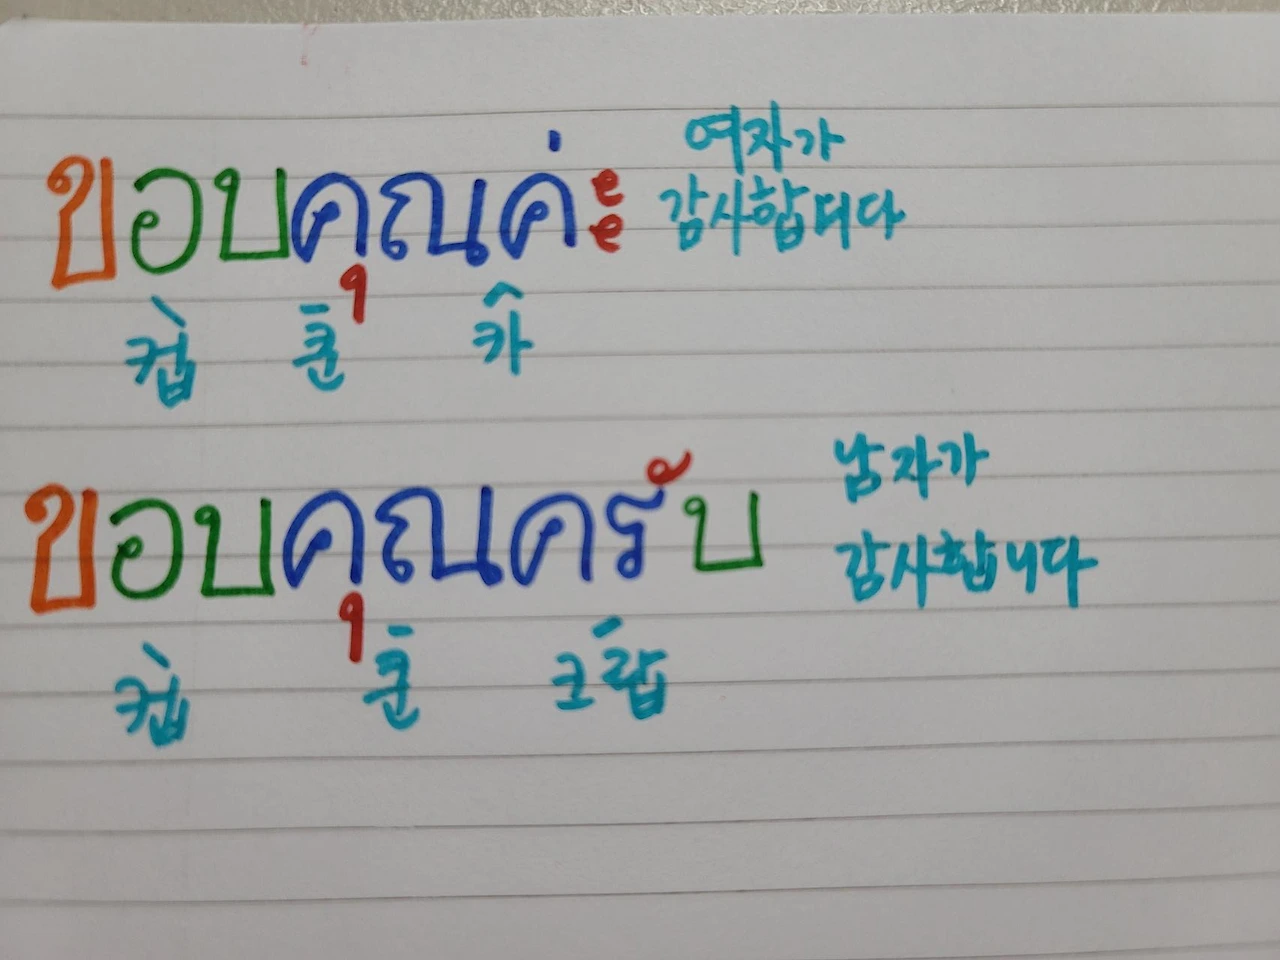 ขอบคุณค่ะ
여자가
감사합니다
컵 쿤 카
ขอบคุณครับ
남자가
감사합니다
컵 쿤 크랍